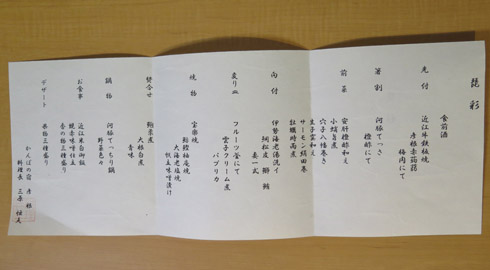 昆彩
食前酒
先付
近江牛鉄板焼
彦根赤蒟蒻
梅肉にて
箸割
河豚てっさ
橙酢にて
前菜
安肝橙酢和え
小蛸旨煮
穴子八幡巻き
生子霙和え
サーモン絹田巻
牡蠣時雨煮
向付
伊勢海老湯洗イ
鯛松皮 鰤 鮪
妻一式
変り皿
フルーツ釜にて
雲子クリーム煮
パプリカ
焼物
宝楽焼
鮑柚庵焼
大海老塩焼
帆立味噌漬け
焚合せ
鮑東煮
大根白煮
青味
鍋物
河豚てっちり鍋
野菜色々
お食事
近江米白御飯
観赤味噌仕立
香の物三種盛り
デザート
果物三種盛り
かんぽの宿 彦根
料理長